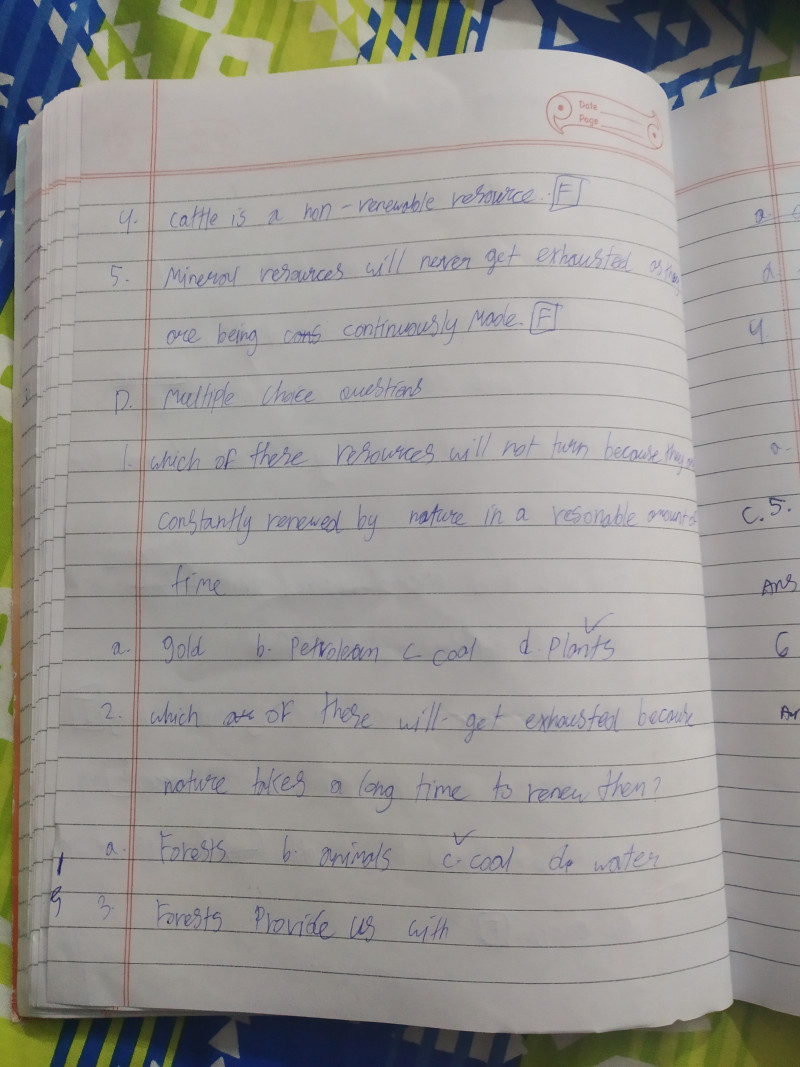 Date
Page
4. cattle is a non-renewable resource. F
5. Mineral resources will never get exhausted as they
are being cons continuously made. F
D. Multiple choice questions
1. which of these resources will not turn because they
constantly renewed by nature in a resonable amount of
time
a. gold b. Petroleam c coal d Plants
2. which of these will get exhausted because
nature takes a long time to renew them?
a. Forests b. animals c. coal d. water
3. Forests Provide us with
a.
a.
4
a.
C.5.
Ans
6